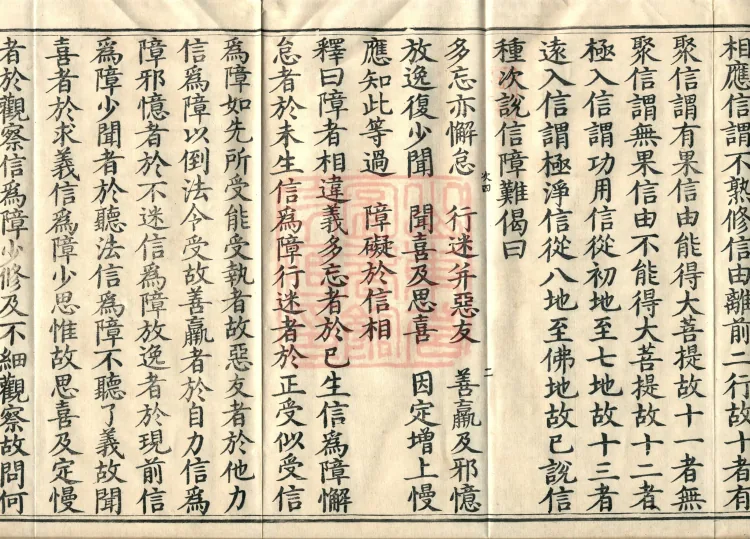 相應信謂不熟修信由離前二行故十者有
聚信謂有果信由能得大菩提故十一者無
聚信謂無果信由不能得大菩提故十二者
極入信謂功用信從初地至七地故十三者
遠入信謂極淨信從八地至佛地故已說信
種次說信障難偈曰
次四 二
多忘亦懈怠 行迷并惡友 善羸及邪憶
放逸復少聞 聞喜及思喜 因定增上慢
應知此等過 障礙於信相
釋曰障者相違義多忘者於已生信爲障懈
怠者於未生信爲障行迷者於正受似受信
爲障如先所受能受執者故惡友者於他力
信爲障以倒法令受故善羸者於自力信爲
障邪憶者於不迷信爲障放逸者於現前信
爲障少聞者於聽法信爲障不聽了義故聞
喜者於求義信爲障少思惟故思喜及定慢
者於觀察信爲障少修及不細觀察故問何